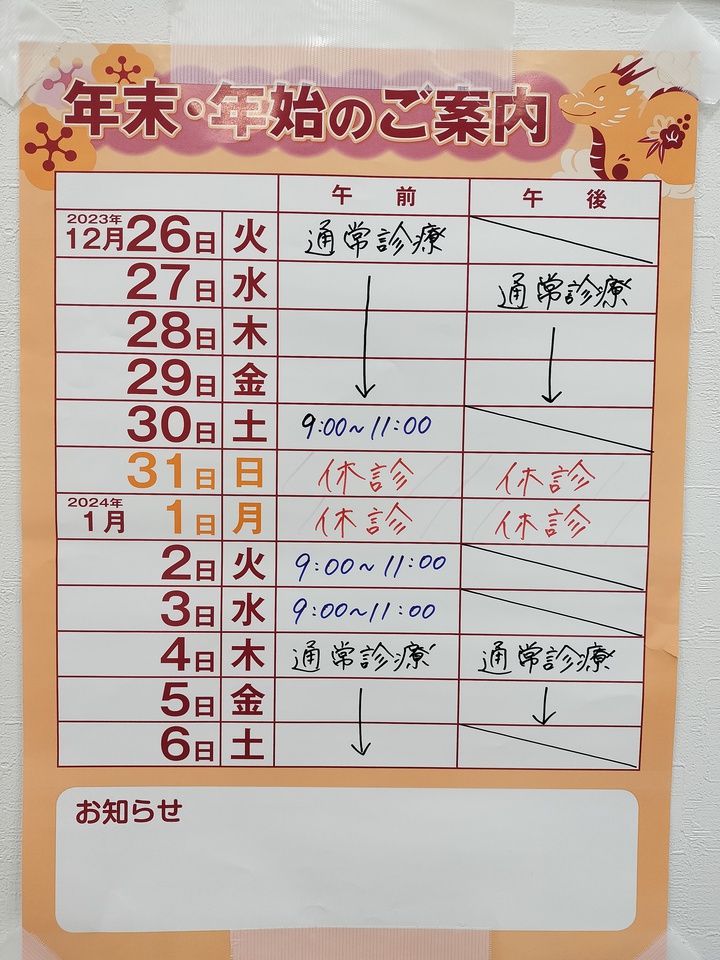 年末・年始のご案内
午前 午後
2023年
12月26日 火 通常診療
27日 水 ↓ 通常診療
28日 木 ↓
29日 金
30日 土 9:00~11:00
31日 日 休診 休診
2024年
1月 1日 月 休診 休診
2日 火 9:00~11:00
3日 水 9:00~11:00
4日 木 通常診療 通常診療
5日 金 ↓ ↓
6日 土
お知らせ